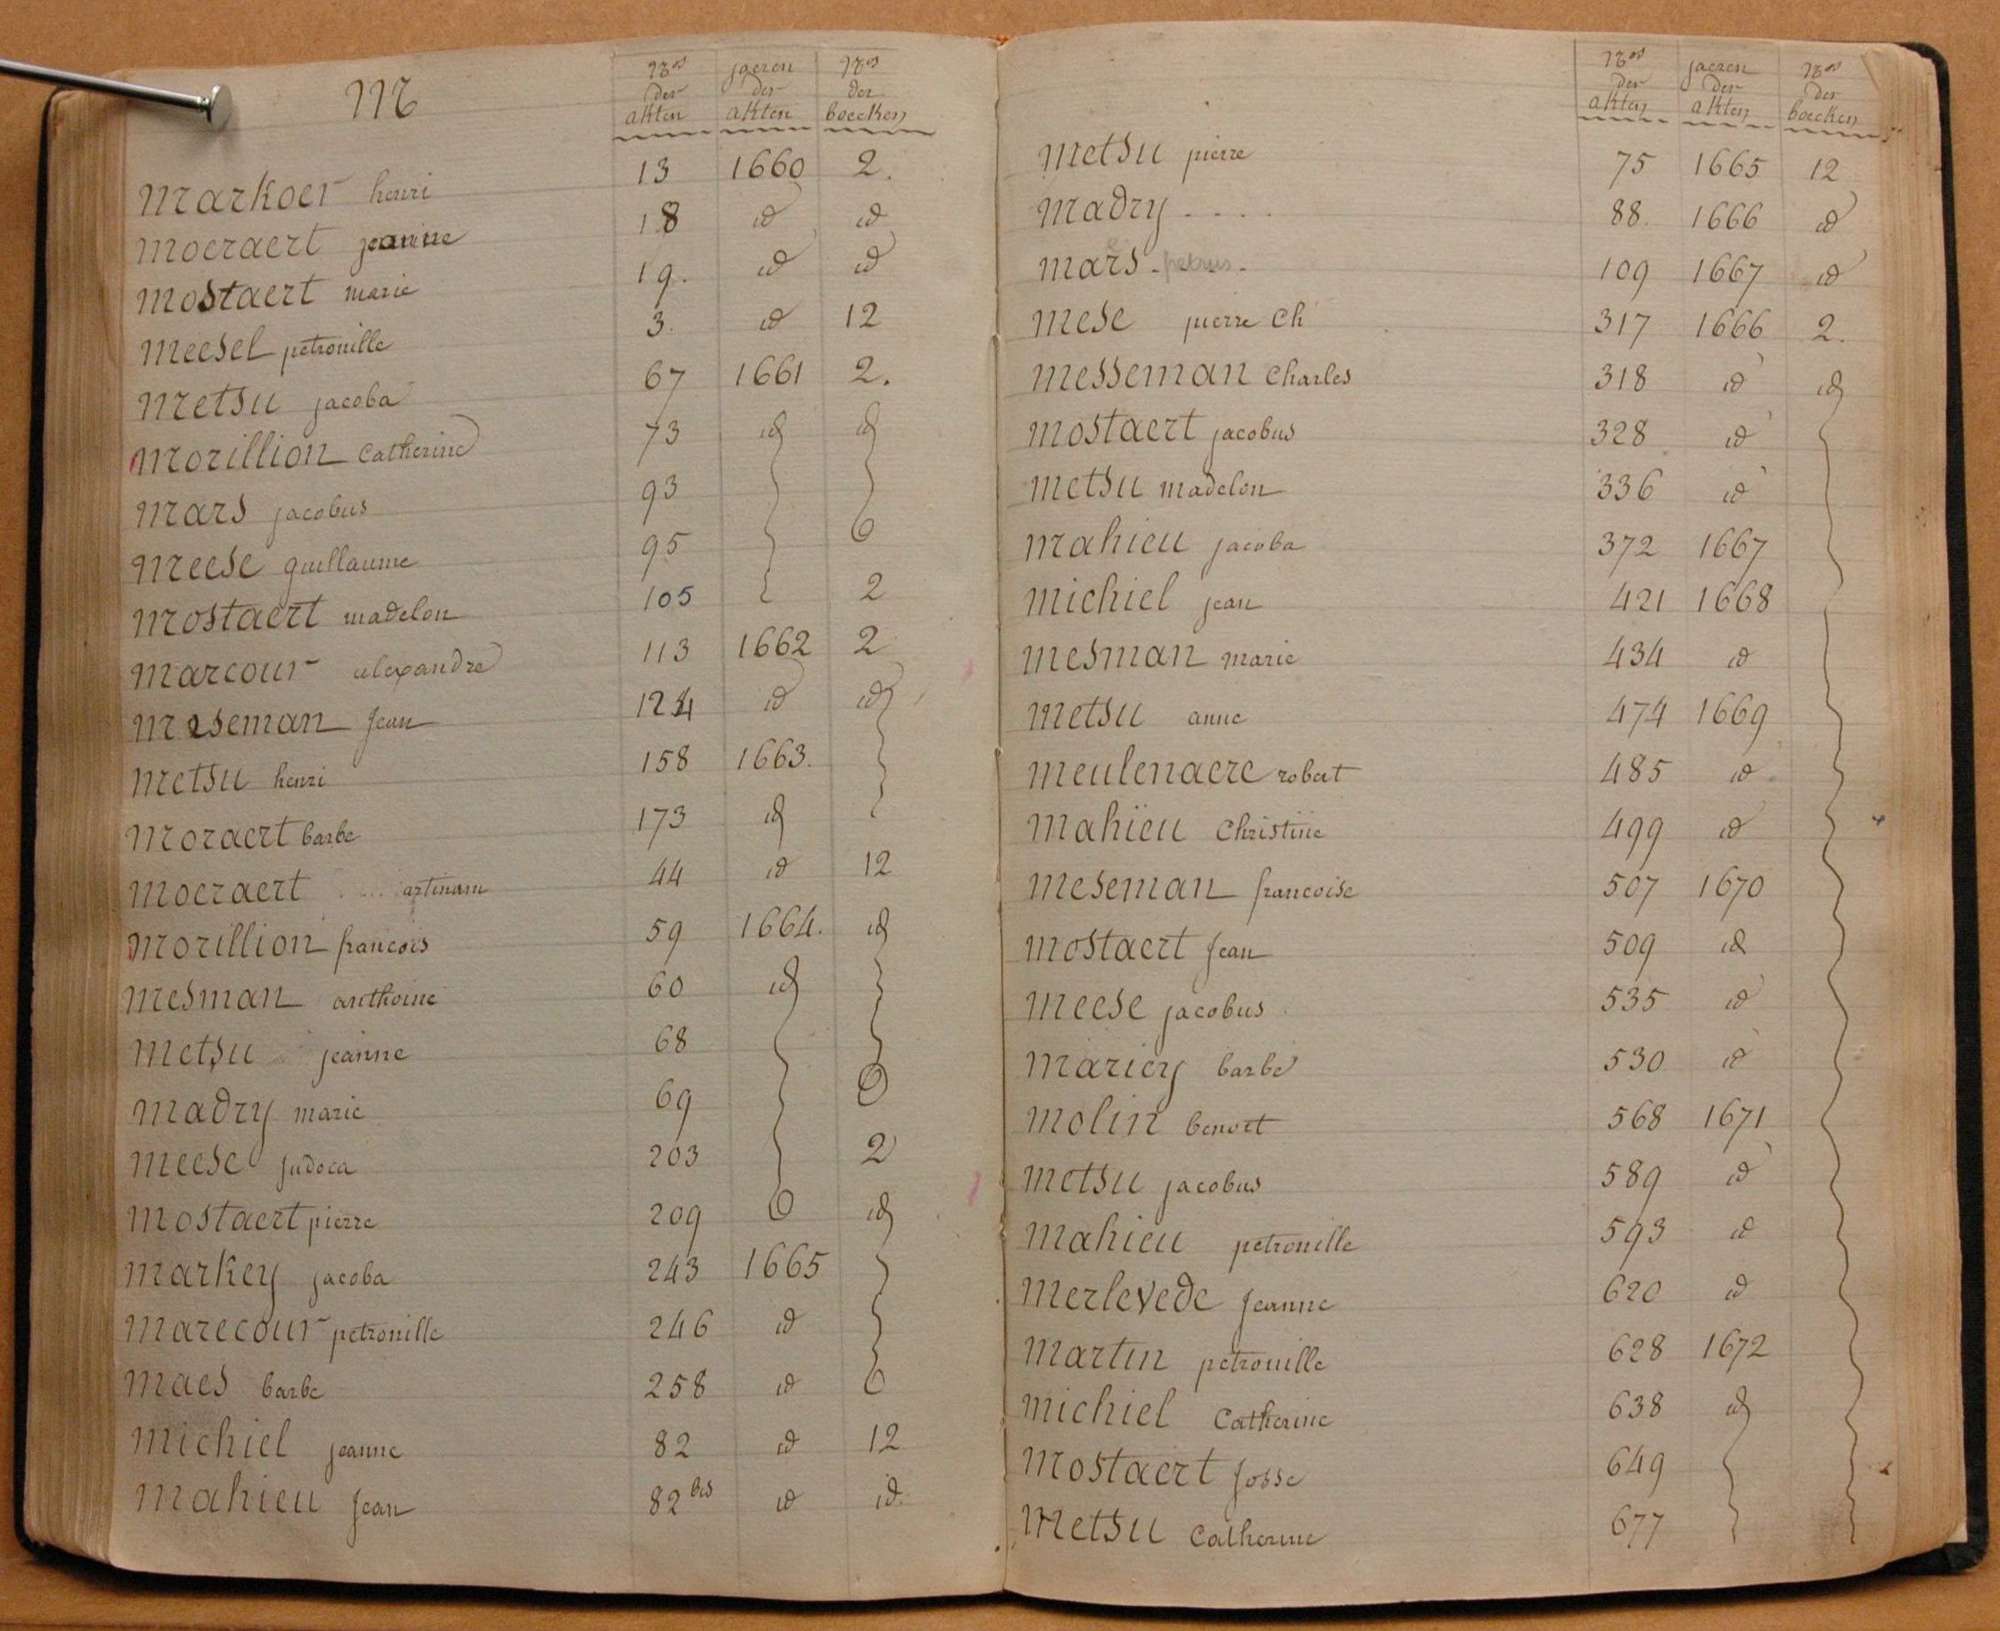 M
Nos der akten jaeren der akten Nos der boecken
Markoer henri 13 1660 2.
Moeraert jeanne 18 id id
Mostaert marie 19. id id
Meesel petronille 3. id 12
Metsu jacoba 67 1661 2.
Morillion Catherine 73 id id
Mars jacobus 93
Meese guillaume 95
Mostaert madelon 105 2
Marcour alexandre 113 1662 2
Meseman Jean 124 id id
Metsu henri 158 1663.
Moraert barbe 173 id
Moeraert .... artinam 44 id 12
Morillion francois 59 1664. id
Mesman anthoine 60 id
Metsu jeanne 68
Madry marie 69
Meese judoca 203 2
Mostaert pierre 209 id
Markey jacoba 243 1665
Marecour petronille 246 id
Maes barbe 258 id
Michiel jeanne 82 id 12
Mahieu Jean 82 bis id id.
Nos der akten jaeren der akten Nos der boecken
Metsu pierre 75 1665 12
Madry .... 88. 1666 id
Mars - petrus - 109 1667 id
Mese pierre Ch 317 1666 2.
Messeman Charles 318 id id
Mostaert jacobus 328 id
Metsu madelon 336 id
Mahieu jacoba 372 1667
Michiel jean 421 1668
Mesman marie 434 id
Metsu anne 474 1669
Meulenaere robert 485 id
Mahieu Christine 499 id
Meseman francoise 507 1670
Mostaert Jean 509 id
Meese jacobus 535 id
Mariey barbe 530 id
Molin benoit 568 1671
Metsu jacobus 589 id
Mahieu petronille 593 id
Merlevede Jeanne 620 id
Martin petronille 628 1672
Michiel Catherine 638 id
Mostaert Josse 649
Metsu Catherine 677